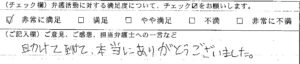 (チェック欄)弁護活動に対する満足度について、チェック☑をお願いします。
☑ 非常に満足 □ 満足 □ やや満足 □ 不満 □ 非常に不満
(ご記入欄)ご意見、ご感想、担当弁護士への一言など
助けて頂て、本当にありがとうございました。